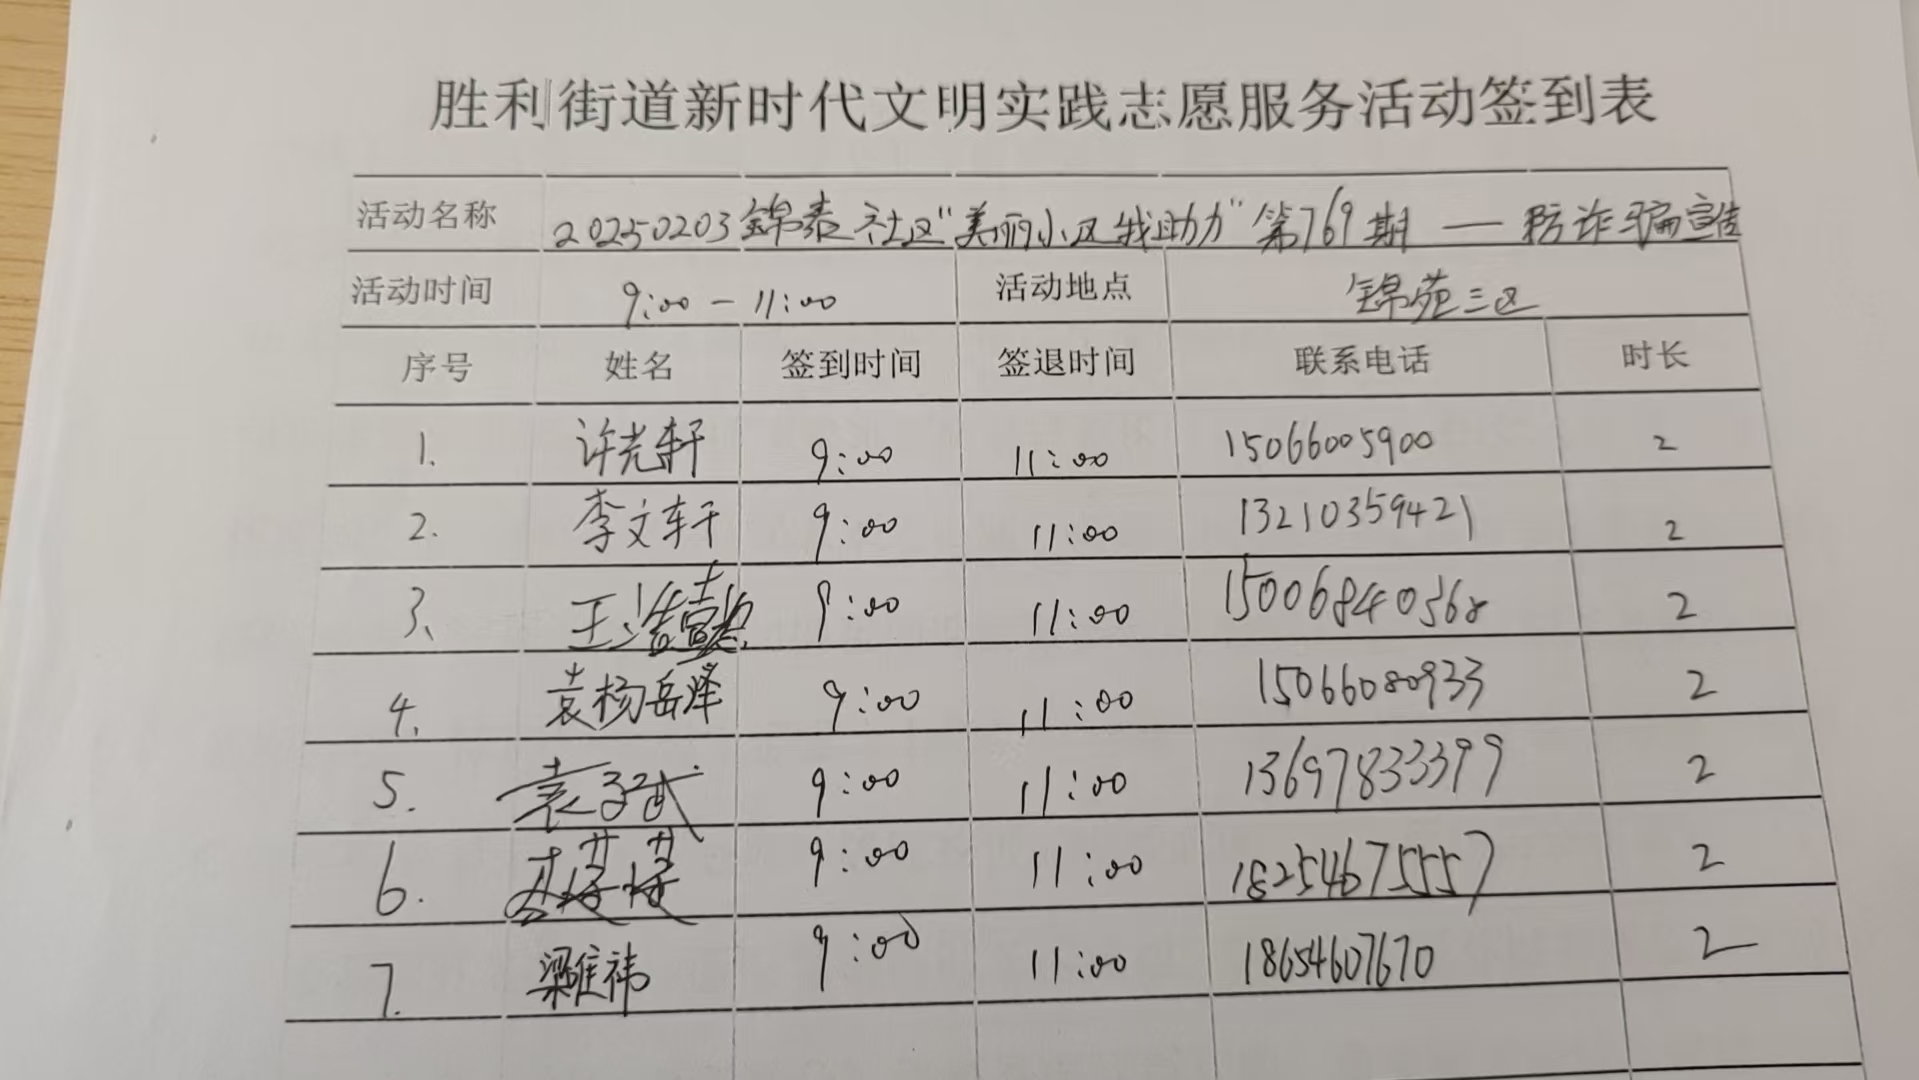 胜利街道新时代文明实践志愿服务活动签到表
活动名称 20250203锦泰社区“美丽小区我助力”第769期 — 防诈骗宣传
活动时间 9:00 - 11:00 活动地点 锦苑三区
序号 姓名 签到时间 签退时间 联系电话 时长
1. 许光轩 9:00 11:00 15066005900 2
2. 李文轩 9:00 11:00 13210359421 2
3、 王浩懿 9:00 11:00 15006840568 2
4. 袁杨岳泽 9:00 11:00 15066080933 2
5. 袁子斌 9:00 11:00 13697833399 2
6. 9:00 11:00 18254675557 2
7. 梁维祎 9:00 11:00 18654607670 2